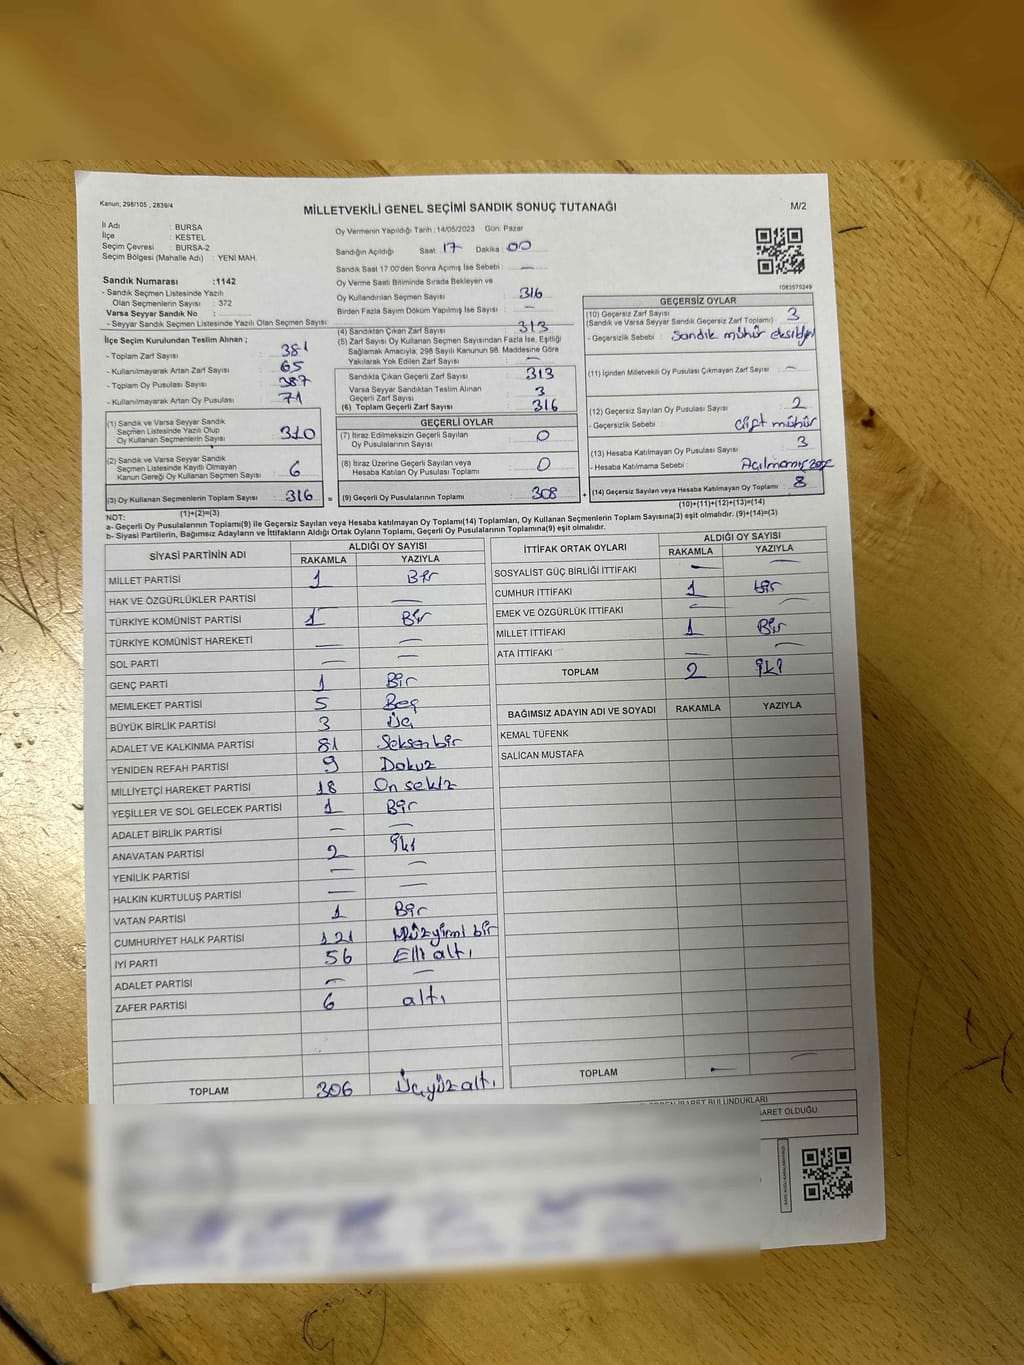 Kanun; 298/105 , 2839/4
MİLLETVEKİLİ GENEL SEÇİMİ SANDIK SONUÇ TUTANAĞI
M/2
İl Adı : BURSA
İlçe : KESTEL
Seçim Çevresi : BURSA-2
Seçim Bölgesi (Mahalle Adı) : YENİ MAH.
Sandık Numarası :1142
- Sandık Seçmen Listesinde Yazılı
Olan Seçmenlerin Sayısı : 372
Varsa Seyyar Sandık No :
- Seyyar Sandık Seçmen Listesinde Yazılı Olan Seçmen Sayısı
İlçe Seçim Kurulundan Teslim Alınan ;
- Toplam Zarf Sayısı : 381
- Kullanılmayarak Artan Zarf Sayısı : 65
- Toplam Oy Pusulası Sayısı : 387
- Kullanılmayarak Artan Oy Pusulası : 71
(1) Sandık ve Varsa Seyyar Sandık
Seçmen Listesinde Yazılı Olup
Oy Kullanan Seçmenlerin Sayısı : 310
(2) Sandık ve Varsa Seyyar Sandık
Seçmen Listesinde Kayıtlı Olmayan
Kanun Gereği Oy Kullanan Seçmen Sayısı : 6
(3) Oy Kullanan Seçmenlerin Toplam Sayısı : 316 =
(1)+(2)=(3)
Oy Vermenin Yapıldığı Tarih :14/05/2023 Gün: Pazar
Sandığın Açıldığı Saat: 17 Dakika : 00
Sandık Saat 17:00'den Sonra Açımış İse Sebebi : —
Oy Verme Saati Bitiminde Sırada Bekleyen ve
Oy Kullandırılan Seçmen Sayısı : 316
Birden Fazla Sayım Döküm Yapılmış İse Sayısı : —
(4) Sandıktan Çıkan Zarf Sayısı : 313
(5) Zarf Sayısı Oy Kullanan Seçmen Sayısından Fazla İse, Eşitliği
Sağlamak Amacıyla; 298 Sayılı Kanunun 98. Maddesine Göre
Yakılarak Yok Edilen Zarf Sayısı : —
Sandıkta Çıkan Geçerli Zarf Sayısı : 313
Varsa Seyyar Sandıktan Teslim Alınan
Geçerli Zarf Sayısı : 3
(6) Toplam Geçerli Zarf Sayısı : 316
GEÇERLİ OYLAR
(7) İtiraz Edilmeksizin Geçerli Sayılan
Oy Pusulalarının Sayısı : 0
(8) İtiraz Üzerine Geçerli Sayılan veya
Hesaba Katılan Oy Pusulası Toplamı : 0
(9) Geçerli Oy Pusulalarının Toplamı : 308 +
1083575249
GEÇERSİZ OYLAR
(10) Geçersiz Zarf Sayısı : 3
(Sandık ve Varsa Seyyar Sandık Geçersiz Zarf Toplamı)
- Geçersizlik Sebebi : Sandık mühür
(11) İçinden Milletvekili Oy Pusulası Çıkmayan Zarf Sayısı : —
(12) Geçersiz Sayılan Oy Pusulası Sayısı : 2
- Geçersizlik Sebebi : Çift mühür
(13) Hesaba Katılmayan Oy Pusulası Sayısı : 3
- Hesaba Katılmama Sebebi : Açılmamış
(14) Geçersiz Sayılan veya Hesaba Katılmayan Oy Toplamı : 8
(10)+(11)+(12)+(13)=(14)
NOT:
a- Geçerli Oy Pusulalarının Toplamı(9) ile Geçersiz Sayılan veya Hesaba katılmayan Oy Toplamı(14) Toplamları, Oy Kullanan Seçmenlerin Toplam Sayısına(3) eşit olmalıdır. (9)+(14)=(3)
b- Siyasi Partilerin, Bağımsız Adayların ve İttifakların Aldığı Ortak Oyların Toplamı, Geçerli Oy Pusulalarının Toplamına(9) eşit olmalıdır.
SİYASİ PARTİNİN ADI ALDIĞI OY SAYISI
RAKAMLA YAZIYLA
MİLLET PARTİSİ 1 Bir
HAK VE ÖZGÜRLÜKLER PARTİSİ —
TÜRKİYE KOMÜNİST PARTİSİ 1 Bir
TÜRKİYE KOMÜNİST HAREKETİ — —
SOL PARTİ — —
GENÇ PARTİ 1 Bir
MEMLEKET PARTİSİ 5 Beş
BÜYÜK BİRLİK PARTİSİ 3 Üç
ADALET VE KALKINMA PARTİSİ 81 Seksen bir
YENİDEN REFAH PARTİSİ 9 Dokuz
MİLLİYETÇİ HAREKET PARTİSİ 18 On sekiz
YEŞİLLER VE SOL GELECEK PARTİSİ 1 Bir
ADALET BİRLİK PARTİSİ — —
ANAVATAN PARTİSİ 2 İki
YENİLİK PARTİSİ — —
HALKIN KURTULUŞ PARTİSİ — —
VATAN PARTİSİ 1 Bir
CUMHURİYET HALK PARTİSİ 121 Yüzyirmi bir
İYİ PARTİ 56 Elli altı
ADALET PARTİSİ — —
ZAFER PARTİSİ 6 altı
TOPLAM 306 Üçyüz altı
İTTİFAK ORTAK OYLARI ALDIĞI OY SAYISI
RAKAMLA YAZIYLA
SOSYALİST GÜÇ BİRLİĞİ İTTİFAKI — —
CUMHUR İTTİFAKI 1 bir
EMEK VE ÖZGÜRLÜK İTTİFAKI — —
MİLLET İTTİFAKI 1 Bir
ATA İTTİFAKI — —
TOPLAM 2 iki
BAĞIMSIZ ADAYIN ADI VE SOYADI RAKAMLA YAZIYLA
KEMAL TÜFENK
SALİCAN MUSTAFA
TOPLAM — —
BULUNDUKLARI
OLDUĞU